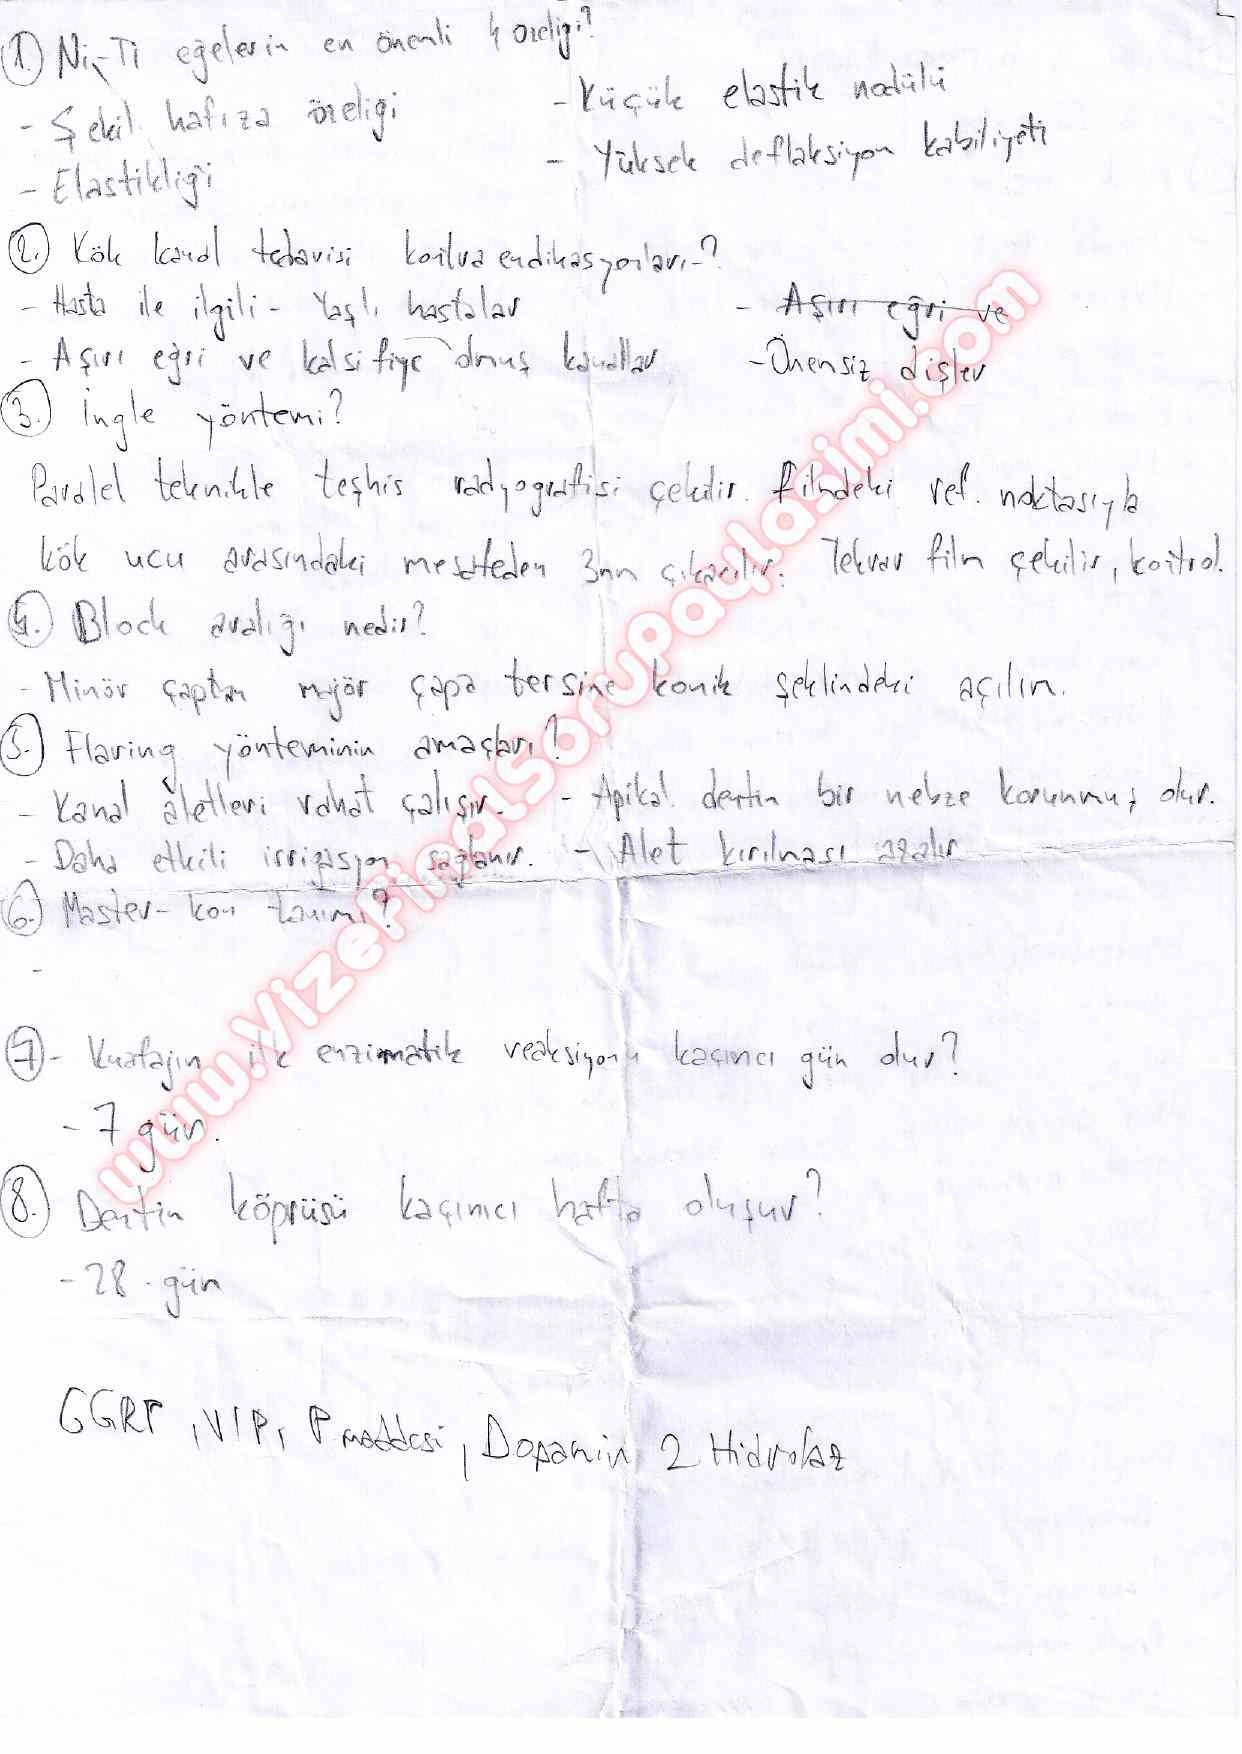 1. Ni-Ti eğelerin en önemli 4 özeliği?
- Şekil hafıza özeliği
- Küçük elastik modülü
- Elastikliği
- Yüksek deflaksiyon kabiliyeti
2. Kök kanal tedavisi kontra endikasyonları-?
- Hasta ile ilgili - Yaşlı hastalar
- Aşırı eğri ve
- Aşırı eğri ve kalsifiye olmuş kanallar
- Önemsiz dişler
3. İngle yöntemi?
Paralel teknikle teşhis radyografisi çekilir. filmdeki ref. noktasıyla
kök ucu arasındaki mesafeden 3mm çıkarılır. Tekrar film çekilir, kontrol.
4. Block aralığı nedir?
- Minör çaptan majör çapa tersine konik şeklindeki açılım.
5. Flaring yönteminin amaçları?
- Kanal aletleri rahat çalışır. - Apikal dentin bir nebze korunmuş olur.
- Daha etkili irrigasyon sağlanır. - Alet kırılması azalır
6. Master-kon tanımı?
-
7- Kuafajın ilk enzimatik reaksiyonu kaçıncı gün olur?
- 7 gün.
8. Dentin köprüsü kaçıncı hafta oluşur?
- 28. gün
CGRP, VIP, P maddesi, Dopamin 2 Hidrolaz
www.VizeFinalSoruPaylasimi.com